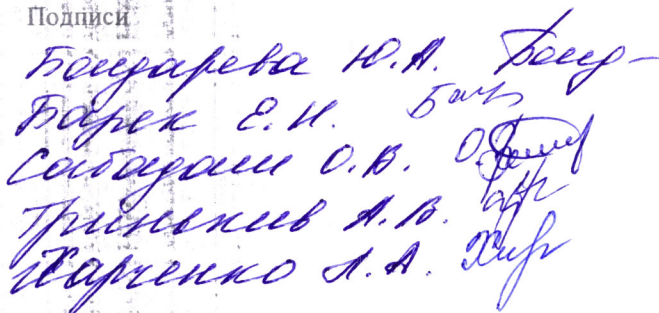 Подписи
Бондарева Ю.А. Бонд-
Барек Е.Н.
Сабадаш О.В.
Тринькив А.В.
Харченко Л.А.